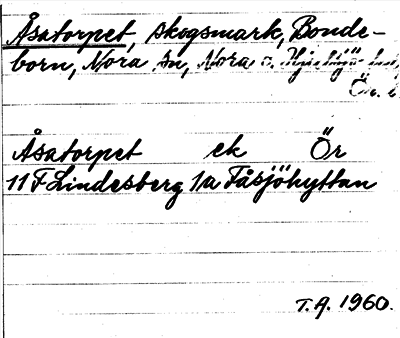 Åsatorpet, skogsmark, Bonde-
born, Nora sn, Nora o.
Ör. l
Åsatorpet ek Ör
11 F Lindesberg 1a Fåsjöhyttan
T.A. 1960.